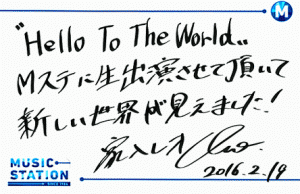 M
"Hello To The World"
Mステに生出演させて頂いて
新しい世界が見えました!
家入レオ
2016.2.19
MUSIC
STATION
SINCE 1986